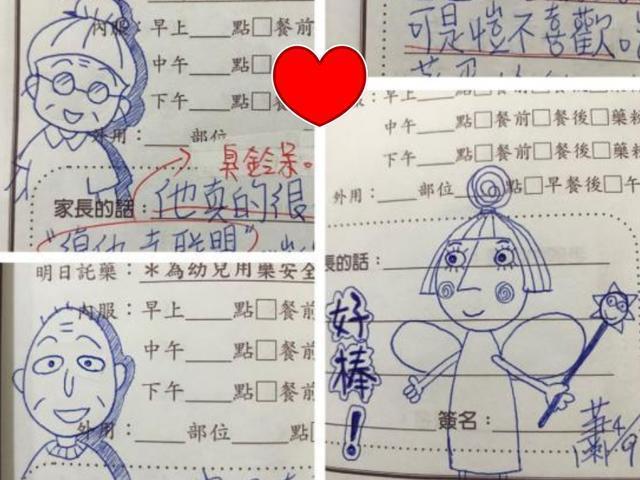 內服：早上___點□餐前
中午___點□餐前
下午___點□餐前
外用：___部位
臭鈴呆。
家長的話：他真的很
可是愷不喜歡
早上___點□餐前□餐後□藥粉
中午___點□餐前□餐後□藥粉
下午___點□餐前□餐後□藥粉
外用：___部位___點□早餐後□午
長的話：
好棒！
簽名：
4/9
明日託藥：＊為幼兒用藥安全
內服：早上___點□餐前
中午___點□餐前
下午___點□餐前
外用：___部位___點□